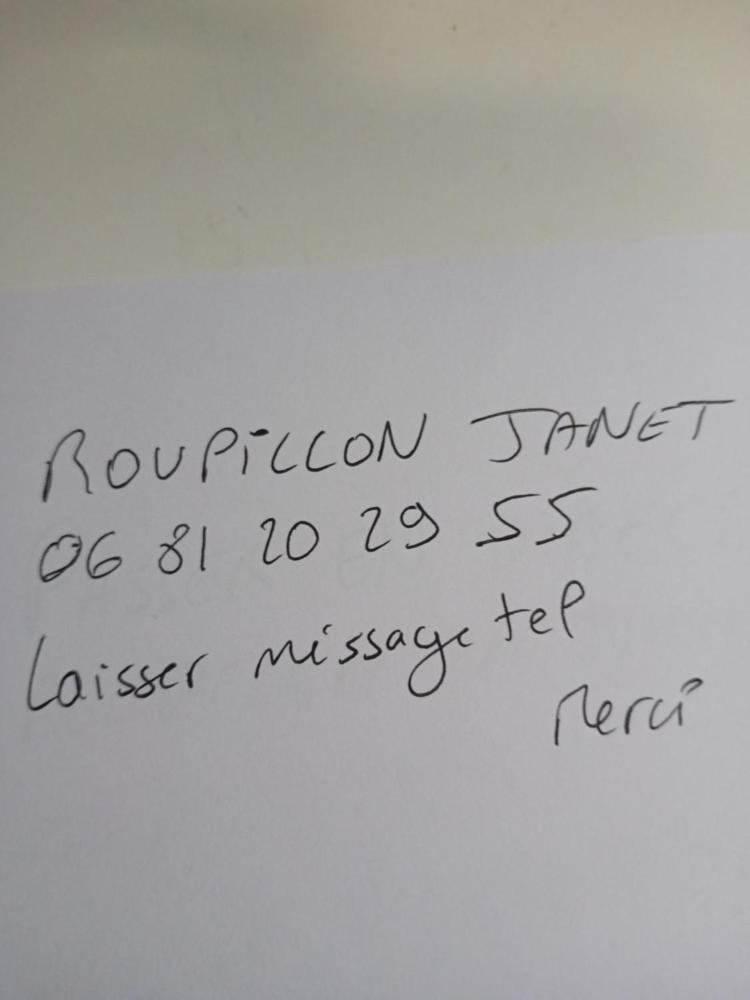 ROUPiLLON JANET
06 81 20 29 55
Laisser missage tel
Merci